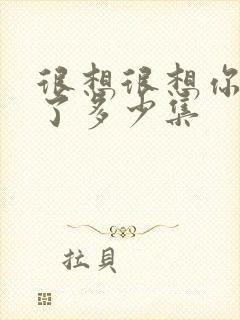 很想很想你
了多少集
拉貝